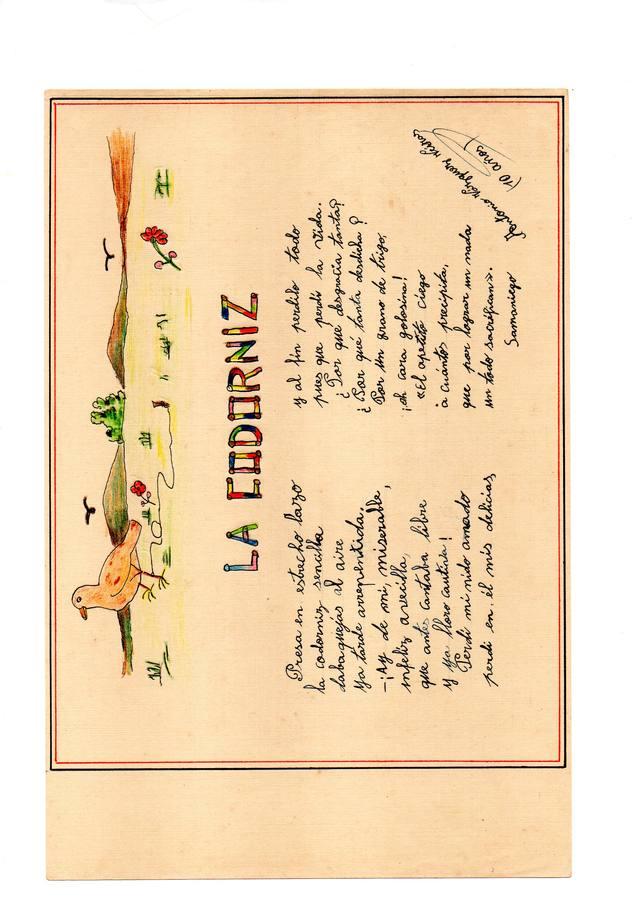 LA CODORNIZ
Presa en estrecho lazo
la codorniz sencilla
daba quejas al aire
ya tarde arrepentida.
—¡Ay de mí, miserable,
infeliz avecilla,
que antes cantaba libre
y ya lloro cautiva!
Perdí mi nido amado
perdí en él mis delicias,
y al fin perdilo todo
pues que perdí la vida.
¿Por qué desgracia tanta?
¿Por qué tanta desdicha?
Por un grano de trigo.
¡oh cara golosina!
«El apetito ciego
a cuántos precipita,
que por lograr un nada
un todo sacrifican».
Samaniego
Antonio
(10 años)